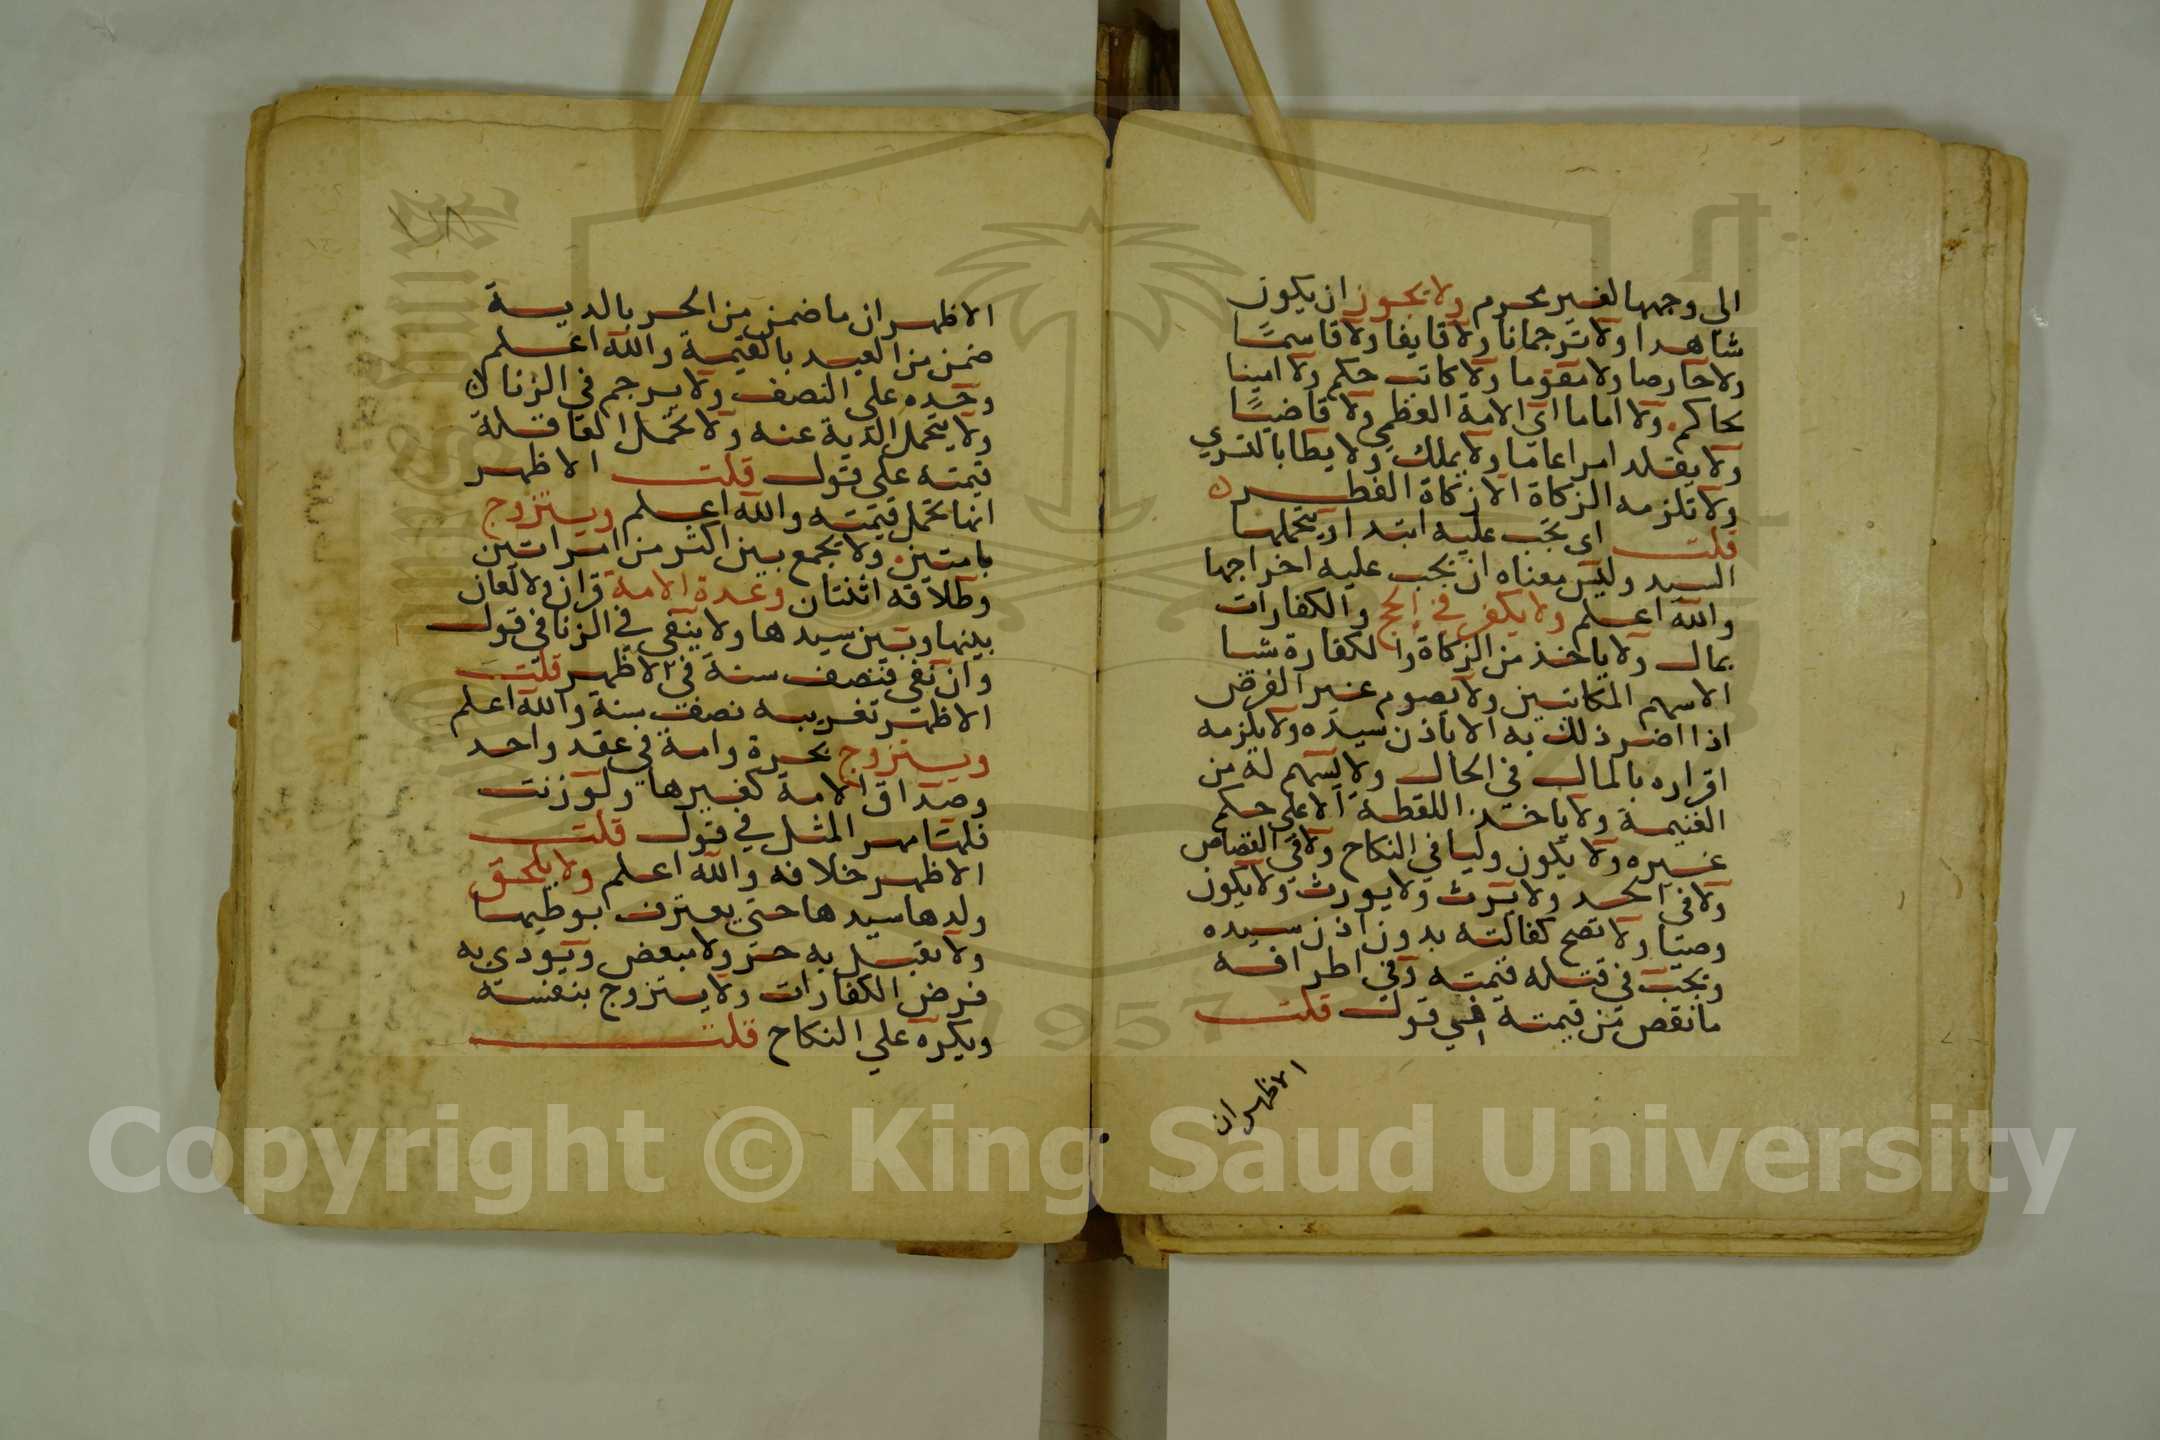 الي وجهها لغير محرم ولا يجوز ان يكون
شاهدا ولا ترجمانا ولا قايفا ولا قاسما
ولا خارصا ولا مقوما ولا كاتب حكم ولا امينا
لحاكم ولا اماما اي الامة العظمي ولا قاضيا
ولا يقلد امرا عاما ولا يملك ولا يطا بالتسري
ولا تلزمه الزكاة الا زكاة الفطر
قلت اي تجب عليه ابتدا ويتحملها
السيد وليس معناه ان يجب عليه اخراجها
والله اعلم ولا يكفر في الحج والكفارات
بمال ولا ياخذ من الزكاة والكفارة شيا
الا سهم المكاتبين ولا يصوم غير الفرض
اذا اضر ذلك به الا باذن سيده ولا يلزمه
اقراره بالمال في الحال ولا يسهم له من
الغنيمة ولا ياخذ اللقطة الا على حكم
غيره ولا يكون وليا في النكاح ولا في القصاص
ولا في الحد ولا يرث ولا يورث ولا يكون
وصيا ولا تصح كفالته بدون اذن سيده
وتجب في قتله قيمته وفي اطرافه
ما نقص من قيمته في قول قلت
الاظهر ان
الاظهر ان ما ضمن من الحر بالدية
ضمن من العبد بالقيمة والله اعلم
وحده على النصف ولا يرجم في الزنا
ولا يتحمل الدية عنه ولا تحمل العاقلة
قيمته على قول قلت الاظهر
انها تحمل قيمته والله اعلم ويتزوج
بامتين ولا يجمع بين اكثر من امراتين
وطلاقه اثنتان وعدة الامة قران ولا لعان
بينها وبين سيدها ولا ينفي في الزنا في قول
وان نفي فنصف سنة في الاظهر قلت
الاظهر تغريبه نصف سنة والله اعلم
ويتزوج بحرة وامة في عقد واحد
وصداق الامة لغيرها ولو زنت
فلها مهر المثل في قول قلت
الاظهر خلافه والله اعلم ولا يلحق
ولدها سيدها حتى يعترف بوطيها
ولا يقتل به حر ولا مبعض ويودي به
فرض الكفارات ولا يتزوج بنفسه
ويكره علي النكاح قلت
Copyright © King Saud University
1957